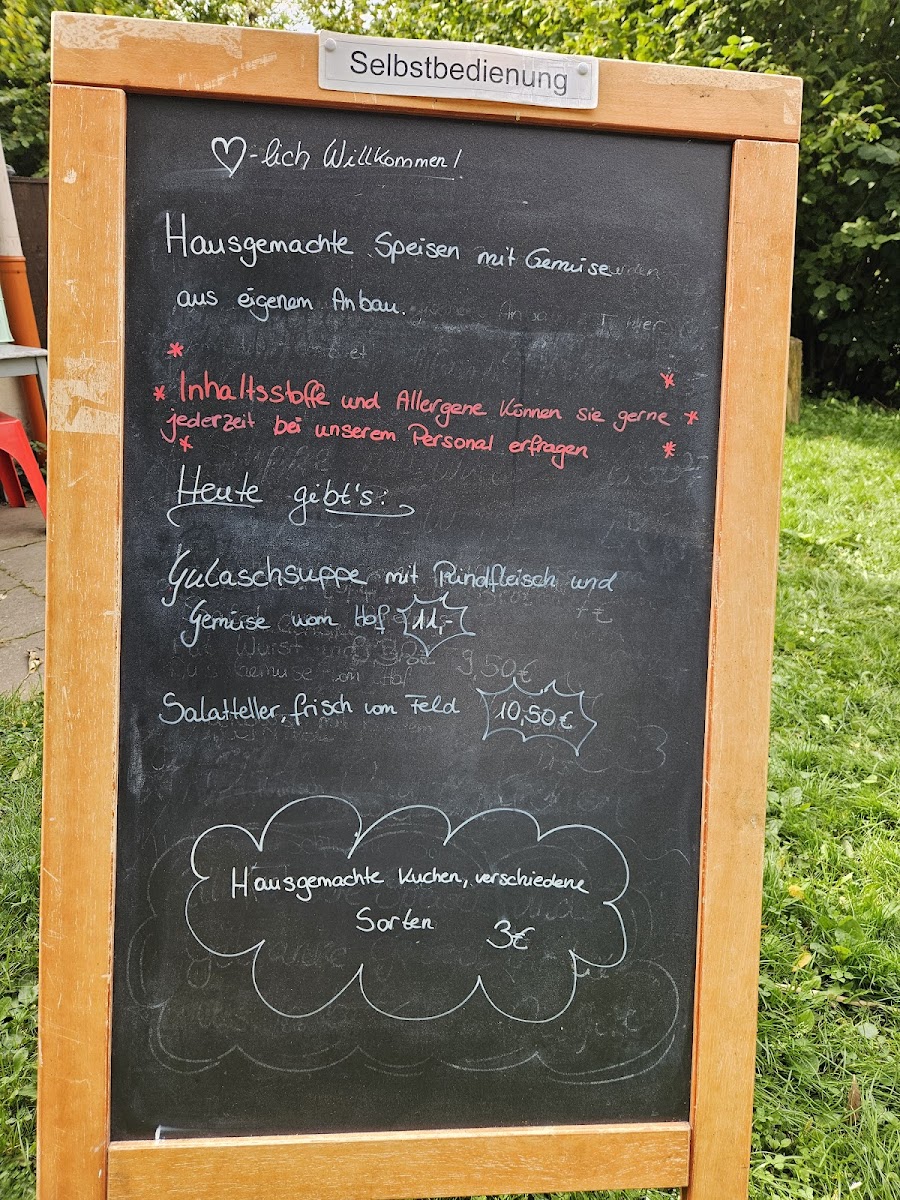 Selbstbedienung
♡-lich Willkommen!
Hausgemachte Speisen mit Gemüse
aus eigenem Anbau.
* Inhaltsstoffe und Allergene können sie gerne *
jederzeit bei unserem Personal erfragen
Heute gibt's:
Gulaschsuppe mit Rindfleisch und
Gemüse vom Hof 11,-
9,50€
Salatteller, frisch vom Feld 10,50€
Hausgemachte Kuchen, verschiedene
Sorten 3€